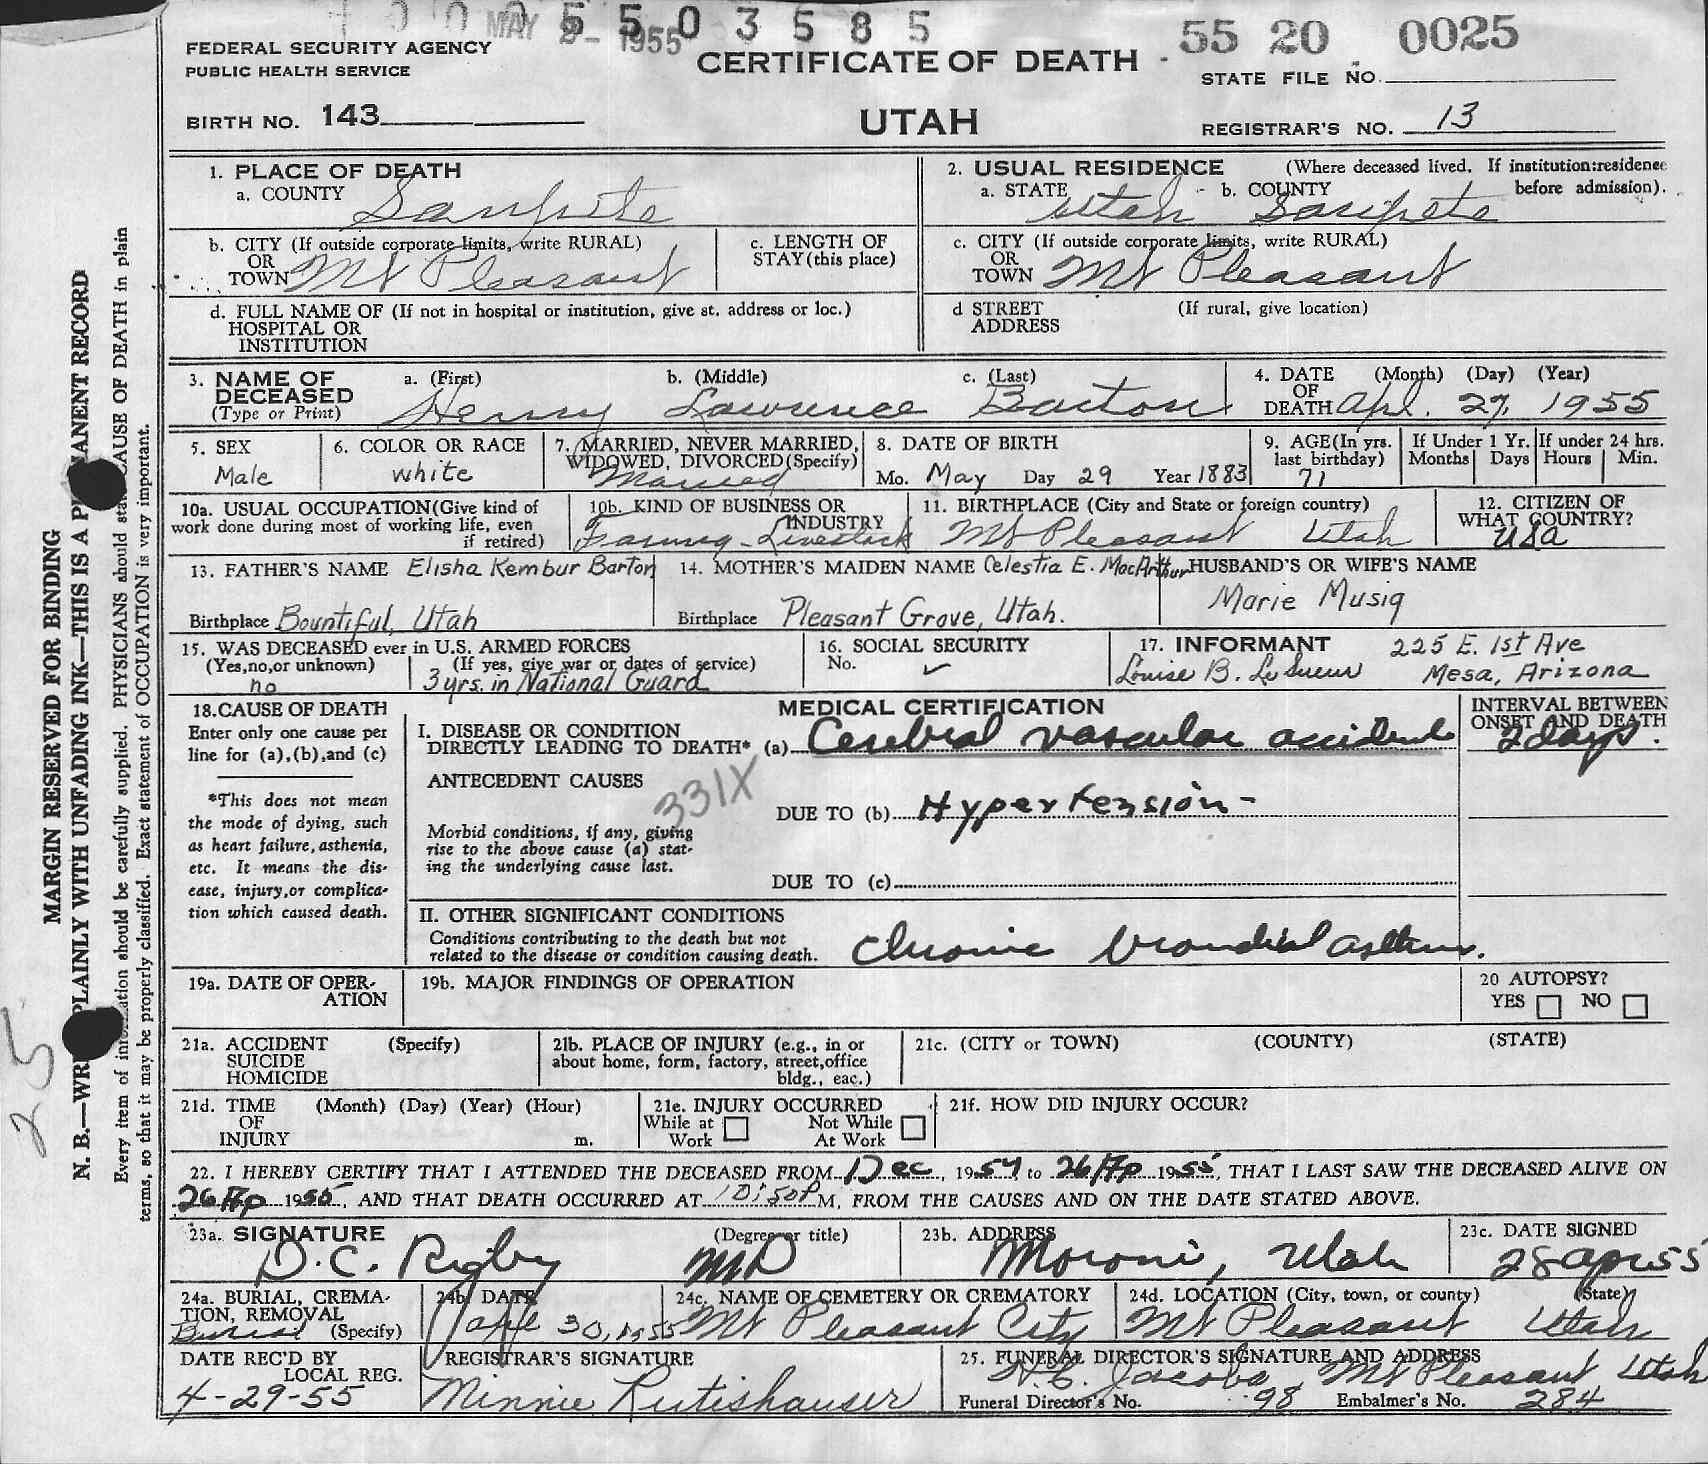 MAY 2 - 1955
5503585
55 20 0025
FEDERAL SECURITY AGENCY
PUBLIC HEALTH SERVICE
CERTIFICATE OF DEATH
STATE FILE NO.
BIRTH NO. 143
UTAH
REGISTRAR'S NO. 13
1. PLACE OF DEATH
a. COUNTY
Sanpete
2. USUAL RESIDENCE (Where deceased lived. If institution:residence before admission).
a. STATE Utah b. COUNTY Sanpete
b. CITY (If outside corporate limits, write RURAL)
OR
TOWN Mt Pleasant
c. LENGTH OF
STAY (this place)
c. CITY (If outside corporate limits, write RURAL)
OR
TOWN Mt Pleasant
d. FULL NAME OF (If not in hospital or institution, give st. address or loc.)
HOSPITAL OR
INSTITUTION
d STREET (If rural, give location)
ADDRESS
3. NAME OF a. (First) b. (Middle) c. (Last)
DECEASED
(Type or Print) Henry Lawrence Barton
4. DATE (Month) (Day) (Year)
OF
DEATH Apl. 27, 1955
5. SEX
Male
6. COLOR OR RACE
white
7. MARRIED, NEVER MARRIED,
WIDOWED, DIVORCED(Specify)
Married
8. DATE OF BIRTH
Mo. May Day 29 Year 1883
9. AGE(In yrs.
last birthday)
71
If Under 1 Yr.
Months Days
If under 24 hrs.
Hours Min.
10a. USUAL OCCUPATION(Give kind of
work done during most of working life, even
if retired)
10b. KIND OF BUSINESS OR
INDUSTRY
Farming - Livestock
11. BIRTHPLACE (City and State or foreign country)
Mt Pleasant Utah
12. CITIZEN OF
WHAT COUNTRY?
USA
13. FATHER'S NAME Elisha Kembur Barton
Birthplace Bountiful, Utah
14. MOTHER'S MAIDEN NAME Celestia E. MacArthur
Birthplace Pleasant Grove, Utah.
HUSBAND'S OR WIFE'S NAME
Marie Musig
15. WAS DECEASED ever in U.S. ARMED FORCES
(Yes,no,or unknown) (If yes, give war or dates of service)
no 3 yrs. in National Guard
16. SOCIAL SECURITY
No.
17. INFORMANT 225 E. 1st Ave
Louise B. LeSueur Mesa, Arizona
18.CAUSE OF DEATH
Enter only one cause per
line for (a),(b),and (c)
*This does not mean
the mode of dying, such
as heart failure, asthenia,
etc. It means the dis-
ease, injury,or complica-
tion which caused death.
MEDICAL CERTIFICATION
I. DISEASE OR CONDITION
DIRECTLY LEADING TO DEATH* (a) Cerebral vascular accident
INTERVAL BETWEEN
ONSET AND DEATH
2 days.
ANTECEDENT CAUSES
331X
DUE TO (b) Hypertension -
Morbid conditions, if any, giving
rise to the above cause (a) stat-
ing the underlying cause last.
DUE TO (c)
II. OTHER SIGNIFICANT CONDITIONS
Conditions contributing to the death but not
related to the disease or condition causing death.
Chronic bronchial asthma.
19a. DATE OF OPER-
ATION
19b. MAJOR FINDINGS OF OPERATION
20 AUTOPSY?
YES NO
21a. ACCIDENT (Specify)
SUICIDE
HOMICIDE
21b. PLACE OF INJURY (e.g., in or
about home, form, factory, street,office
bldg., eac.)
21c. (CITY or TOWN) (COUNTY) (STATE)
21d. TIME (Month) (Day) (Year) (Hour)
OF
INJURY m.
21e. INJURY OCCURRED
While at Not While
Work At Work
21f. HOW DID INJURY OCCUR?
22. I HEREBY CERTIFY THAT I ATTENDED THE DECEASED FROM 1 Dec, 1954, to 26 Ap 1955, THAT I LAST SAW THE DECEASED ALIVE ON
26 Ap 1955, AND THAT DEATH OCCURRED AT 10:50P M, FROM THE CAUSES AND ON THE DATE STATED ABOVE.
23a. SIGNATURE (Degree or title)
D.C. Rigby MD
23b. ADDRESS
Moroni, Utah
23c. DATE SIGNED
28 Apr 55
24a. BURIAL, CREMA-
TION, REMOVAL
Burial (Specify)
24b. DATE
Apl 30, 1955
24c. NAME OF CEMETERY OR CREMATORY
Mt Pleasant City
24d. LOCATION (City, town, or county) (State)
Mt Pleasant Utah
DATE REC'D BY
LOCAL REG.
4-29-55
REGISTRAR'S SIGNATURE
Minnie Rutishauser
25. FUNERAL DIRECTOR'S SIGNATURE AND ADDRESS
N.C. Jacobs, Mt Pleasant Utah
Funeral Director's No. 98 Embalmer's No. 284
MARGIN RESERVED FOR BINDING
N. B.—WRITE PLAINLY WITH UNFADING INK—THIS IS A PERMANENT RECORD
Every item of information should be carefully supplied. PHYSICIANS should state CAUSE OF DEATH in plain
terms, so that it may be properly classified. Exact statement of OCCUPATION is very important.
25